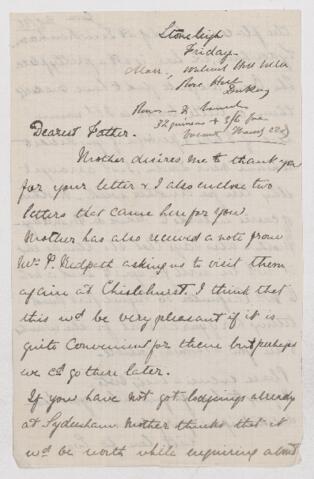 Stoneleigh
Friday
Rose Hill
Dorking
Dearest Father.
Mother desires me to thank you
for your letter & I also enclose two
letters that came here for you.
Mother has also received a note from
Mrs P. Redpath asking us to visit them
again at Chislehurst. I think that
this wd be very pleasant if it is
quite convenient for them but perhaps
we cd go there later.
If you have not got lodgings already
at Sydenham Mother thinks that it
wd be worth while inquiring about